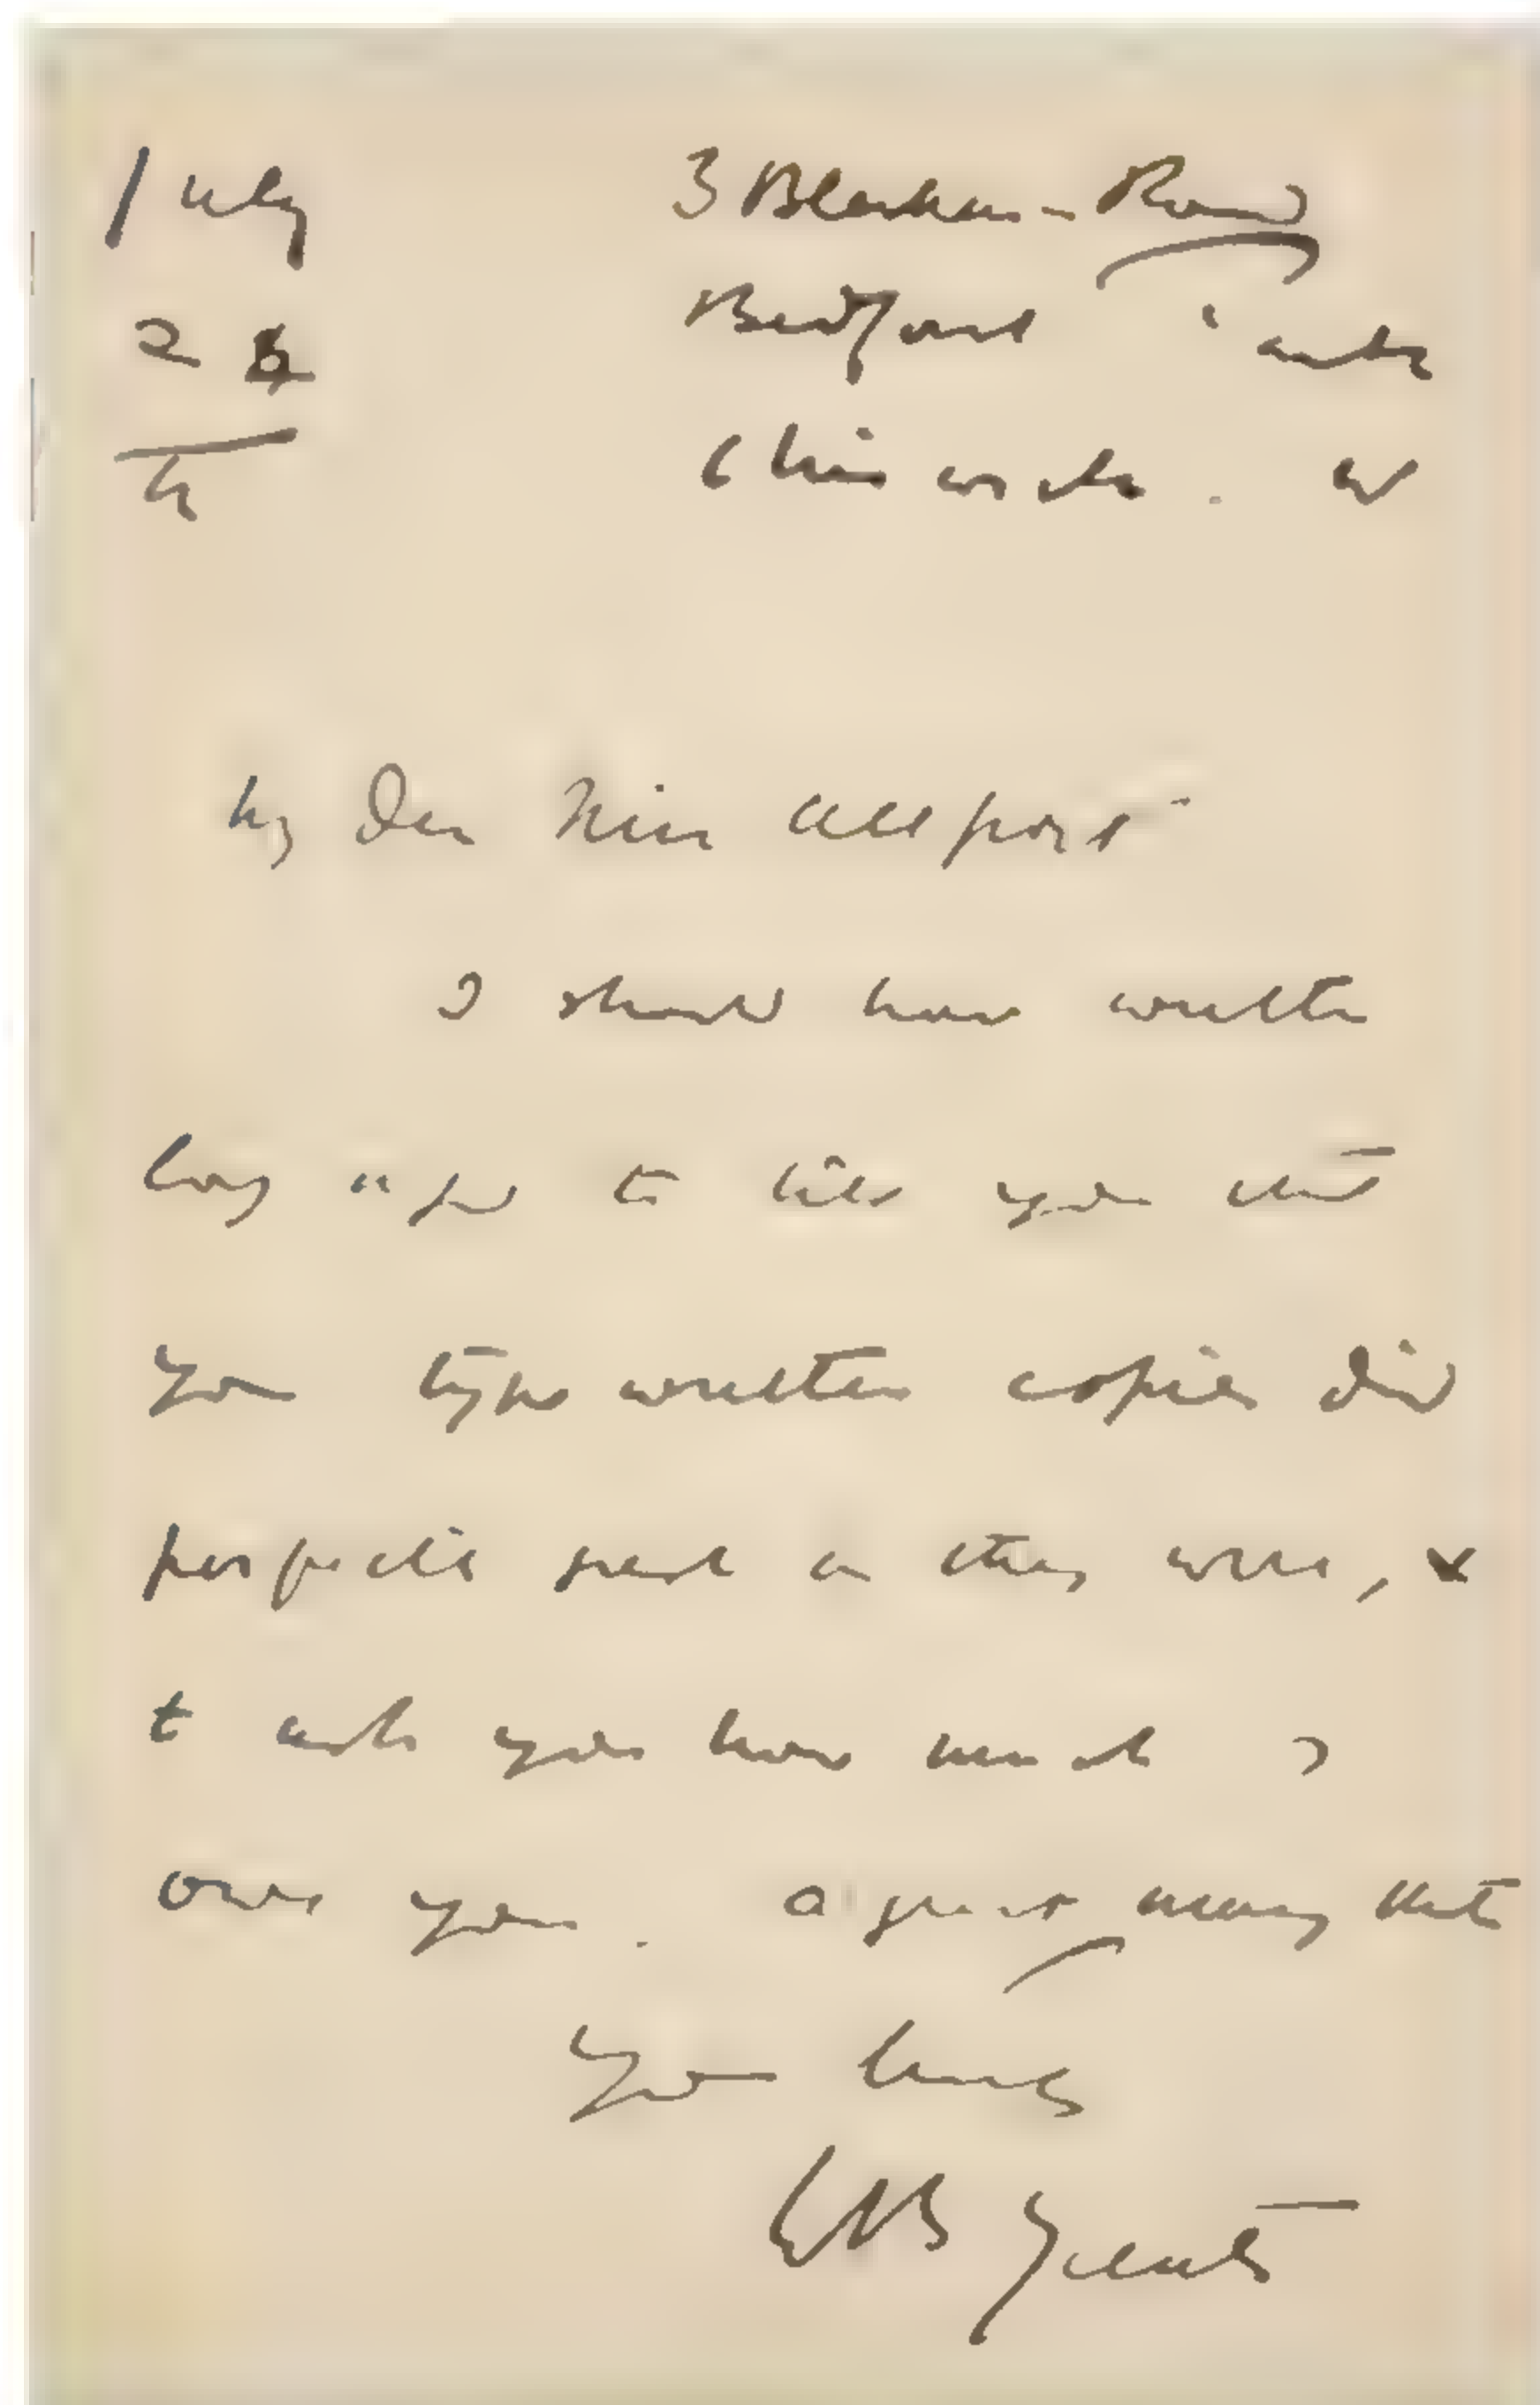 July 3 Blenheim Road
Bedford Park
Chiswick. W
My Dear Miss Allport
I should have written
long ago to tell you that
your type written copies did
perfectly good as they were, &
to ask you how much I
owe you. A great many thanks
Yours truly
W B Yeats